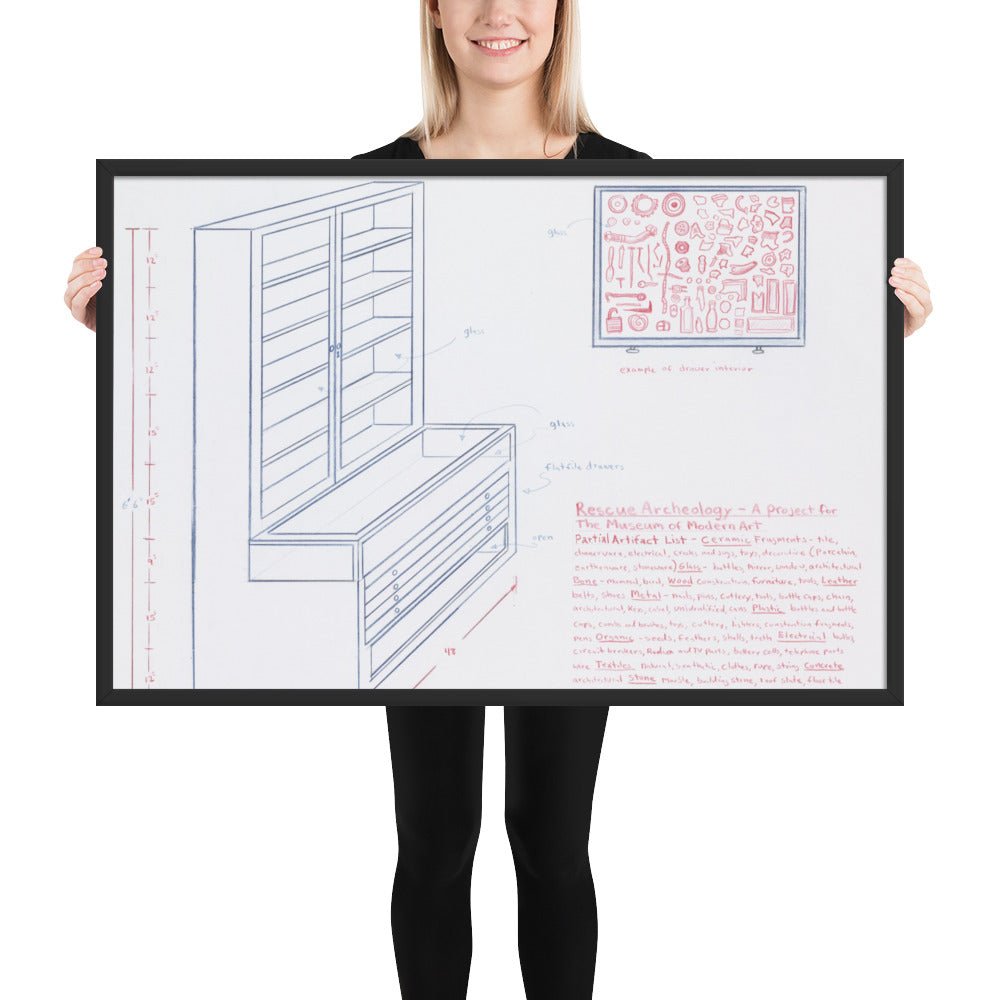 12"
12"
12"
15"
6' 6"
15"
9"
15"
12"
48
glass
glass
glass
flatfile drawers
open
example of drawer interior
Rescue Archeology - A project for
The Museum of Modern Art
Partial Artifact List - Ceramic Fragments - tile,
dinnerware, electrical, crocks and jugs, toys, decorative (Porcelain,
earthenware, stoneware) Glass - bottles, mirror, window, architectural
Bone - mammal, bird, Wood construction, furniture, tools, Leather
belts, shoes Metal - nails, pins, cutlery, tools, bottle caps, chain,
architectural, keys, coins, unidentified, cans Plastic bottles and bottle
caps, combs and brushes, toys, cutlery, lighters, construction fragments,
pens Organic - seeds, feathers, shells, teeth Electrical bulbs,
circuit breakers, Radios and TV parts, battery cells, telephone parts
wire Textiles natural, synthetic, clothes, rope, string Concrete
architectural Stone marble, building stone, roof slate, floor tile